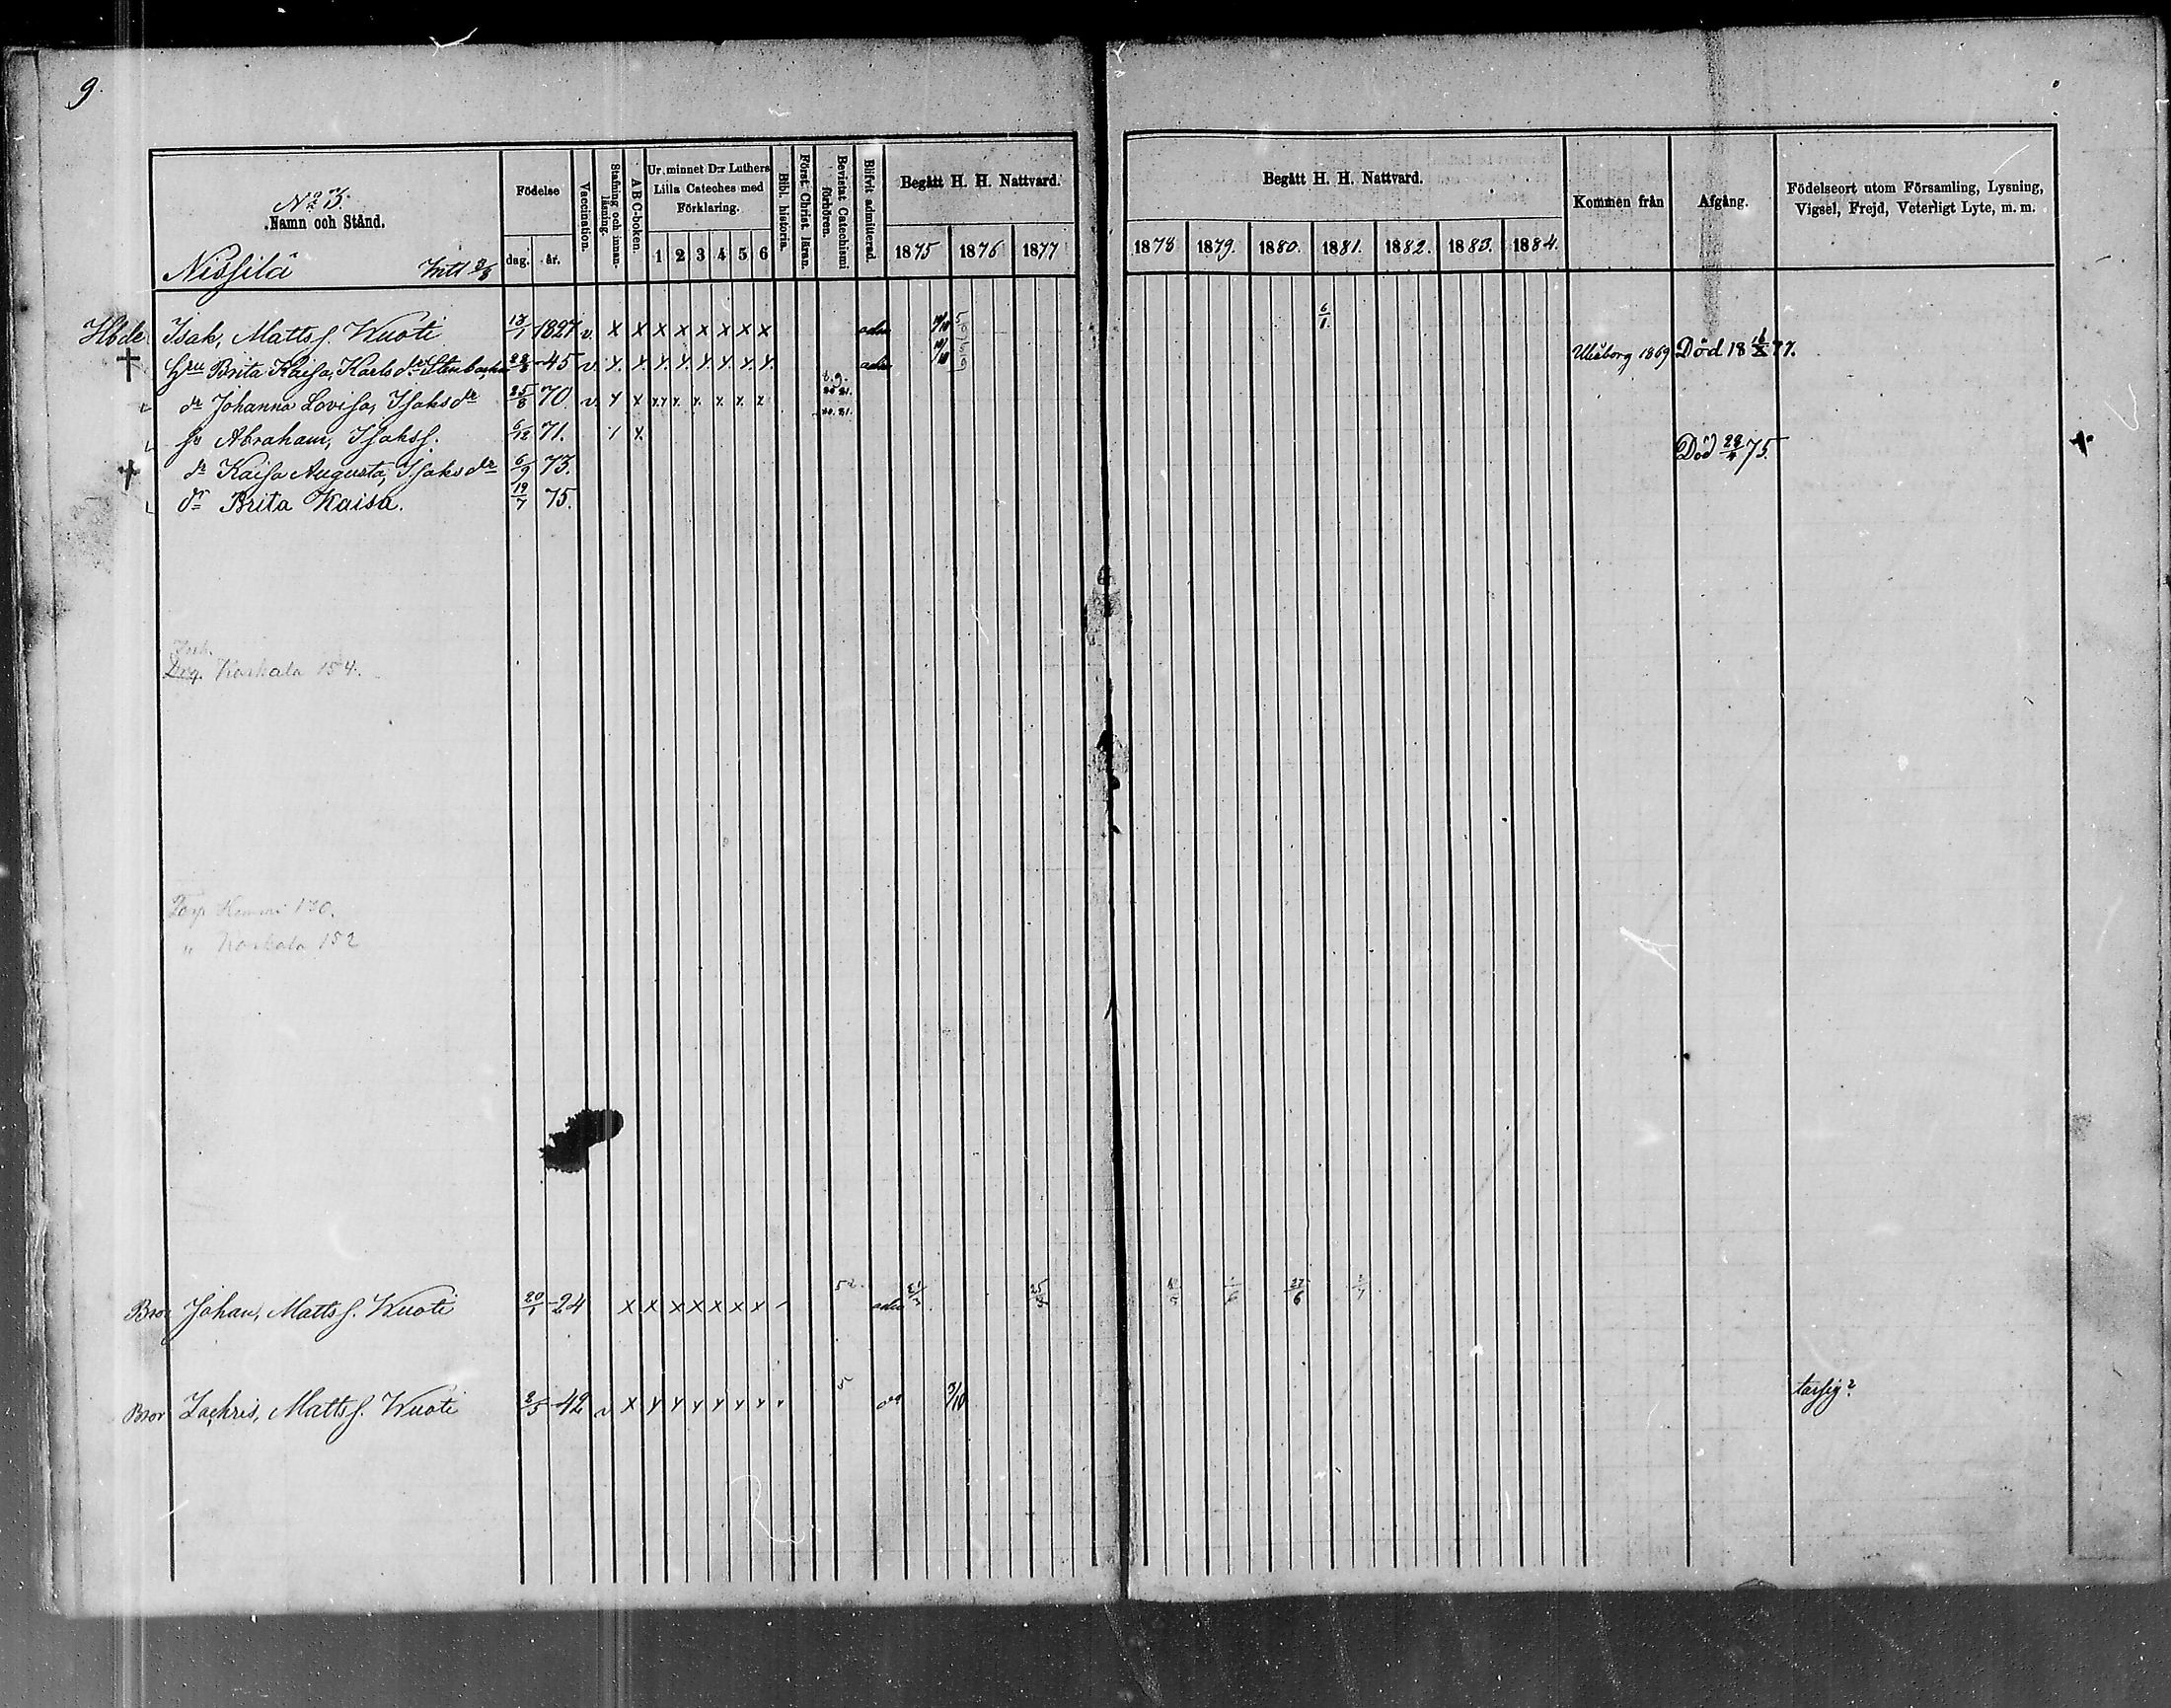 9.
Namn och Stånd.
Födelse
dag. år.
Vaccination.
Stafning och innanläsning.
A B C-boken.
Ur minnet D:r Luthers Lilla Cateches med Förklaring.
1 2 3 4 5 6
Bibl. historia.
Först. Christ. läran.
Bevistat Catechismi förhören.
Blifvit admitterad.
Begått H. H. Nattvard.
1875 1876 1877
Begått H. H. Nattvard.
1878 1879. 1880. 1881. 1882. 1883. 1884.
Kommen från
Afgång.
Födelseort utom Församling, Lysning, Vigsel, Frejd, Veterligt Lyte, m. m.
Nissilä
Hbde Isak, Matts s. Wuoti 13/1 1827 v. x x x x x x x x adm 6/1
† Hru Brita Kaisa, Karls dr 22/8 -45 v. adm Uleåborg 1869 Död 18 77.
dr Johanna Lovisa, Isaks dr 25/8 70 v. 20. 21.
sn Abraham, Isaks s. 6/12 71.
† dr Kaisa Augusta, Isaks dr 6/9 73. Död 75.
dr Brita Kaisa. 19/7 75.
Karkala 154.
Torp Kemmi 130.
" Karkala 152
Bror Johan, Matts s. Wuoti 20/1 -24 x x x x x x x adm 27/6
Bror Zachris, Matts s. Wuoti 2/5 -42 v x 5